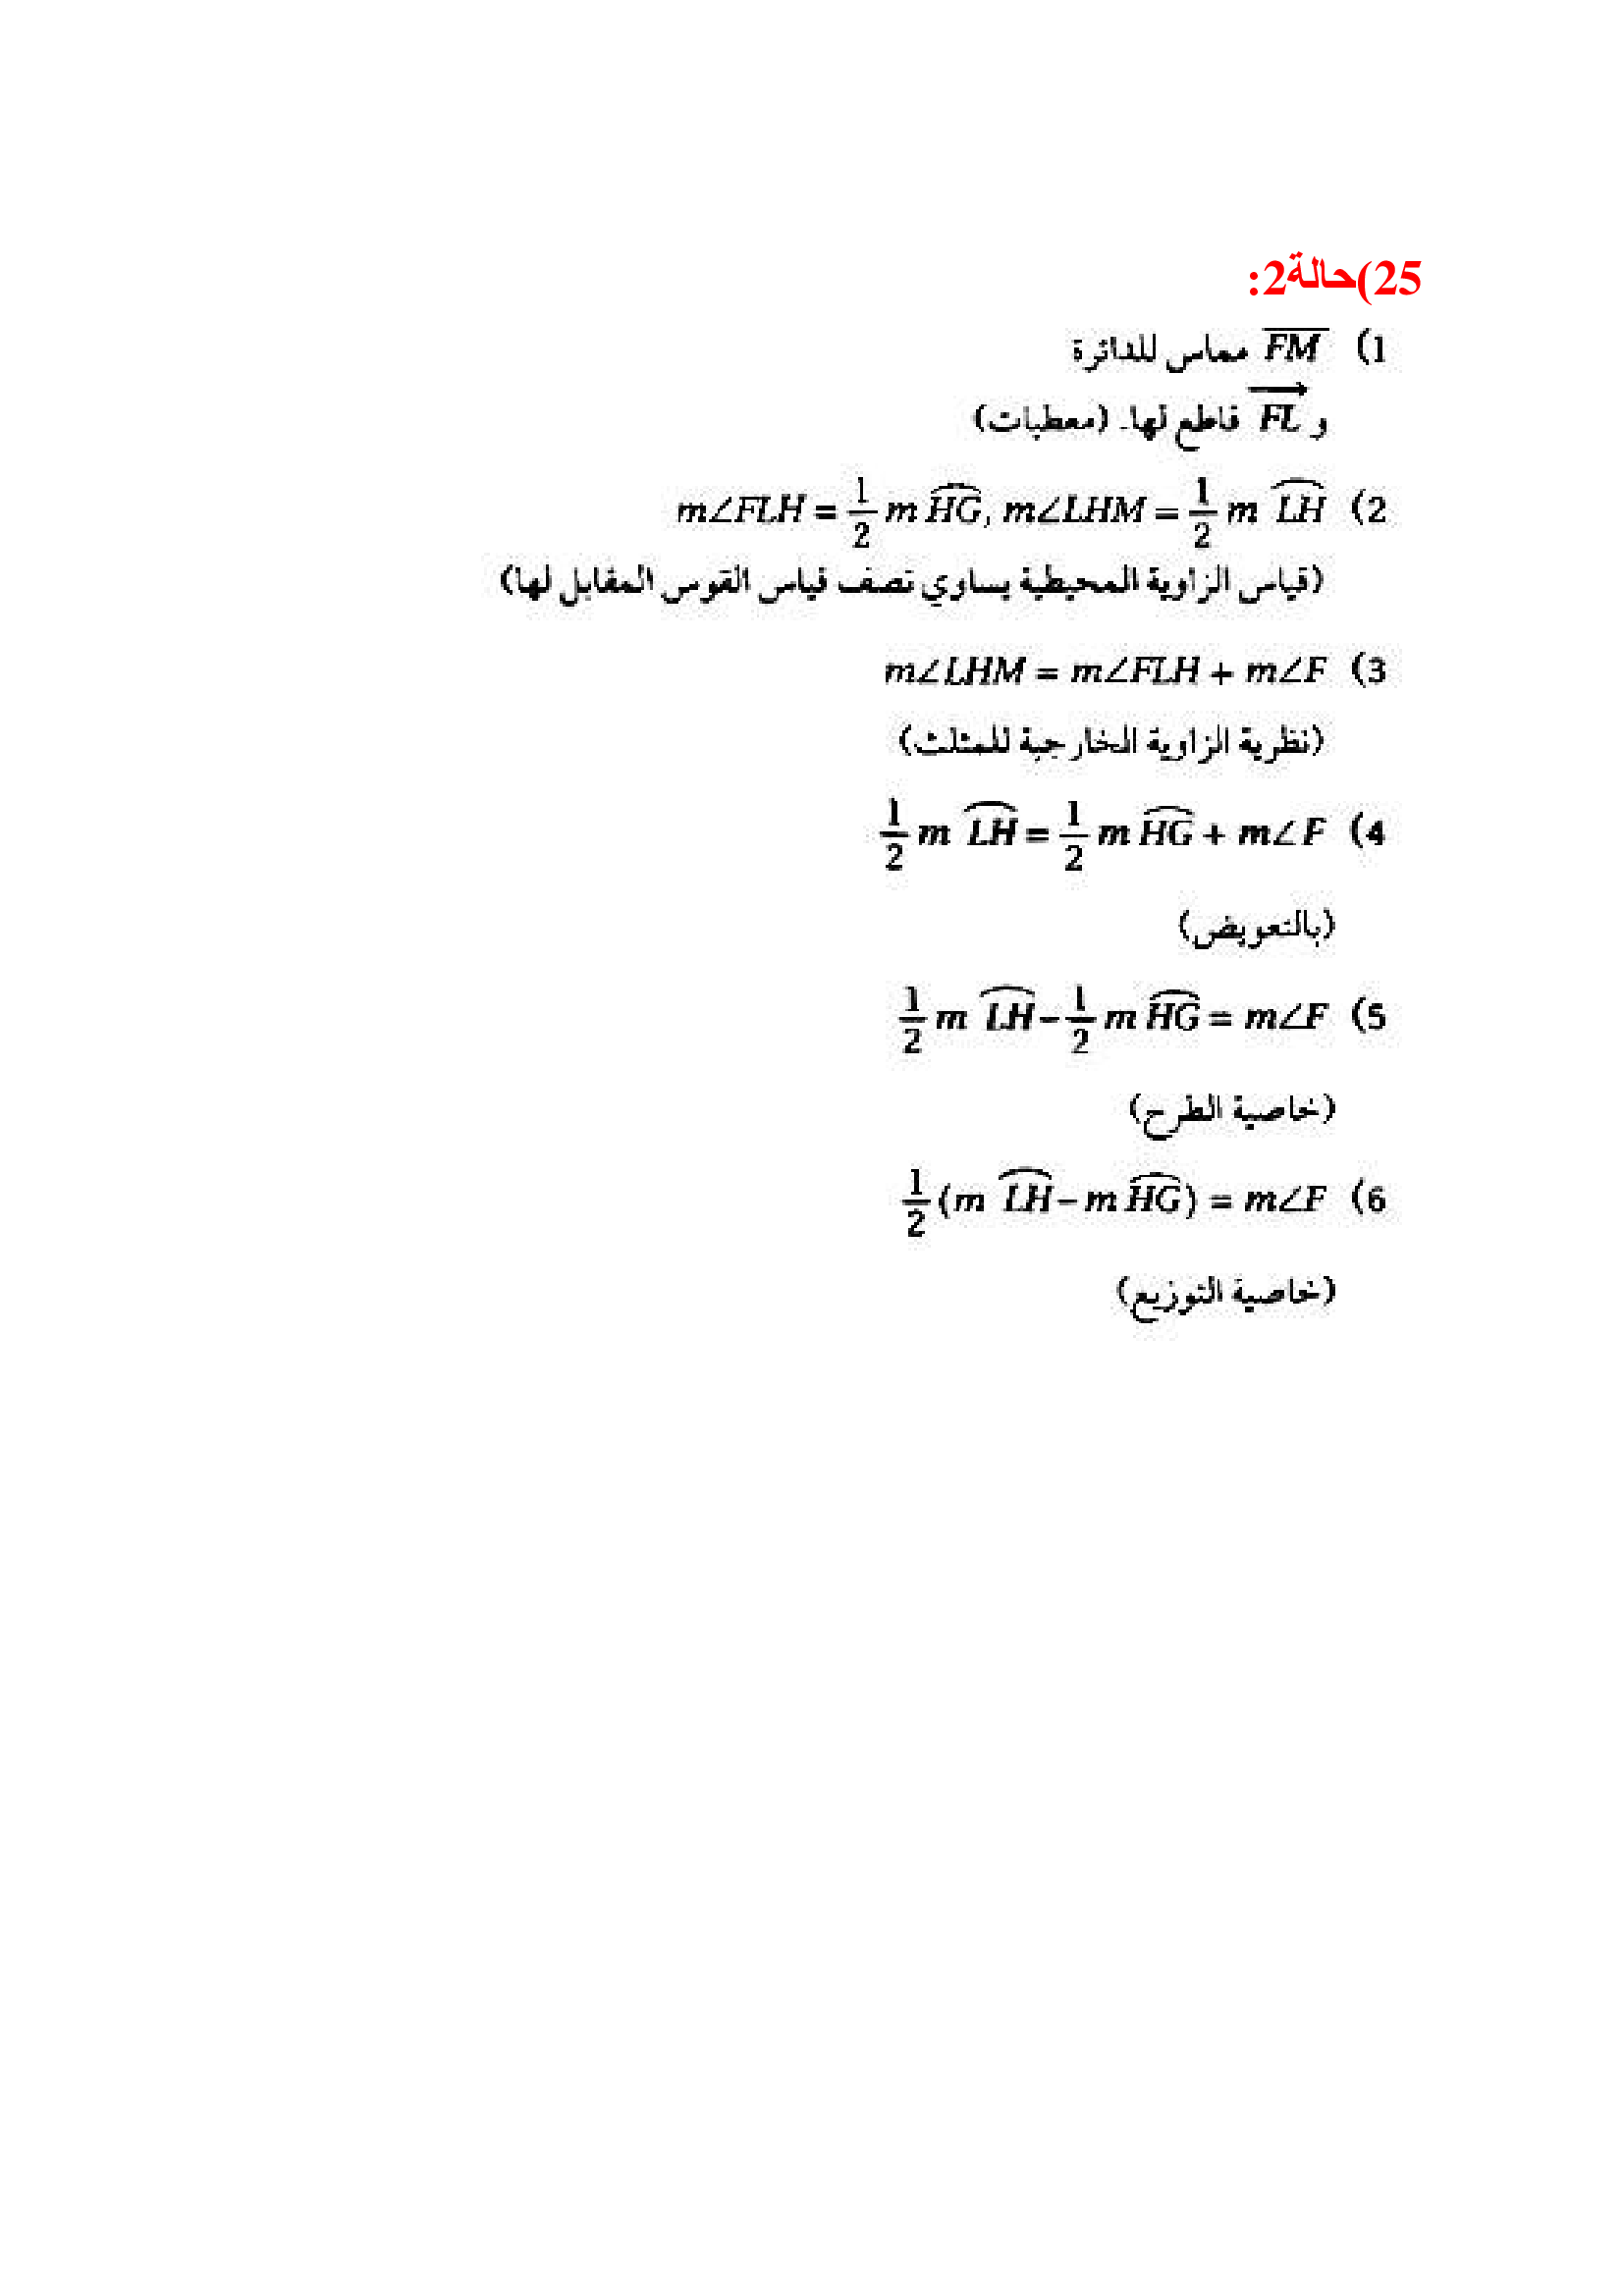 25)حالة2:
1) $\overline{FM}$ مماس للدائرة
و $\overrightarrow{FL}$ قاطع لها. (معطيات)
2) $m\angle FLH = \frac{1}{2} m \widehat{HG}, m\angle LHM = \frac{1}{2} m \widehat{LH}$
(قياس الزاوية المحيطية يساوي نصف قياس القوس المقابل لها)
3) $m\angle LHM = m\angle FLH + m\angle F$
(نظرية الزاوية الخارجية للمثلث)
4) $\frac{1}{2} m \widehat{LH} = \frac{1}{2} m \widehat{HG} + m\angle F$
(بالتعويض)
5) $\frac{1}{2} m \widehat{LH} - \frac{1}{2} m \widehat{HG} = m\angle F$
(خاصية الطرح)
6) $\frac{1}{2} (m \widehat{LH} - m \widehat{HG}) = m\angle F$
(خاصية التوزيع)